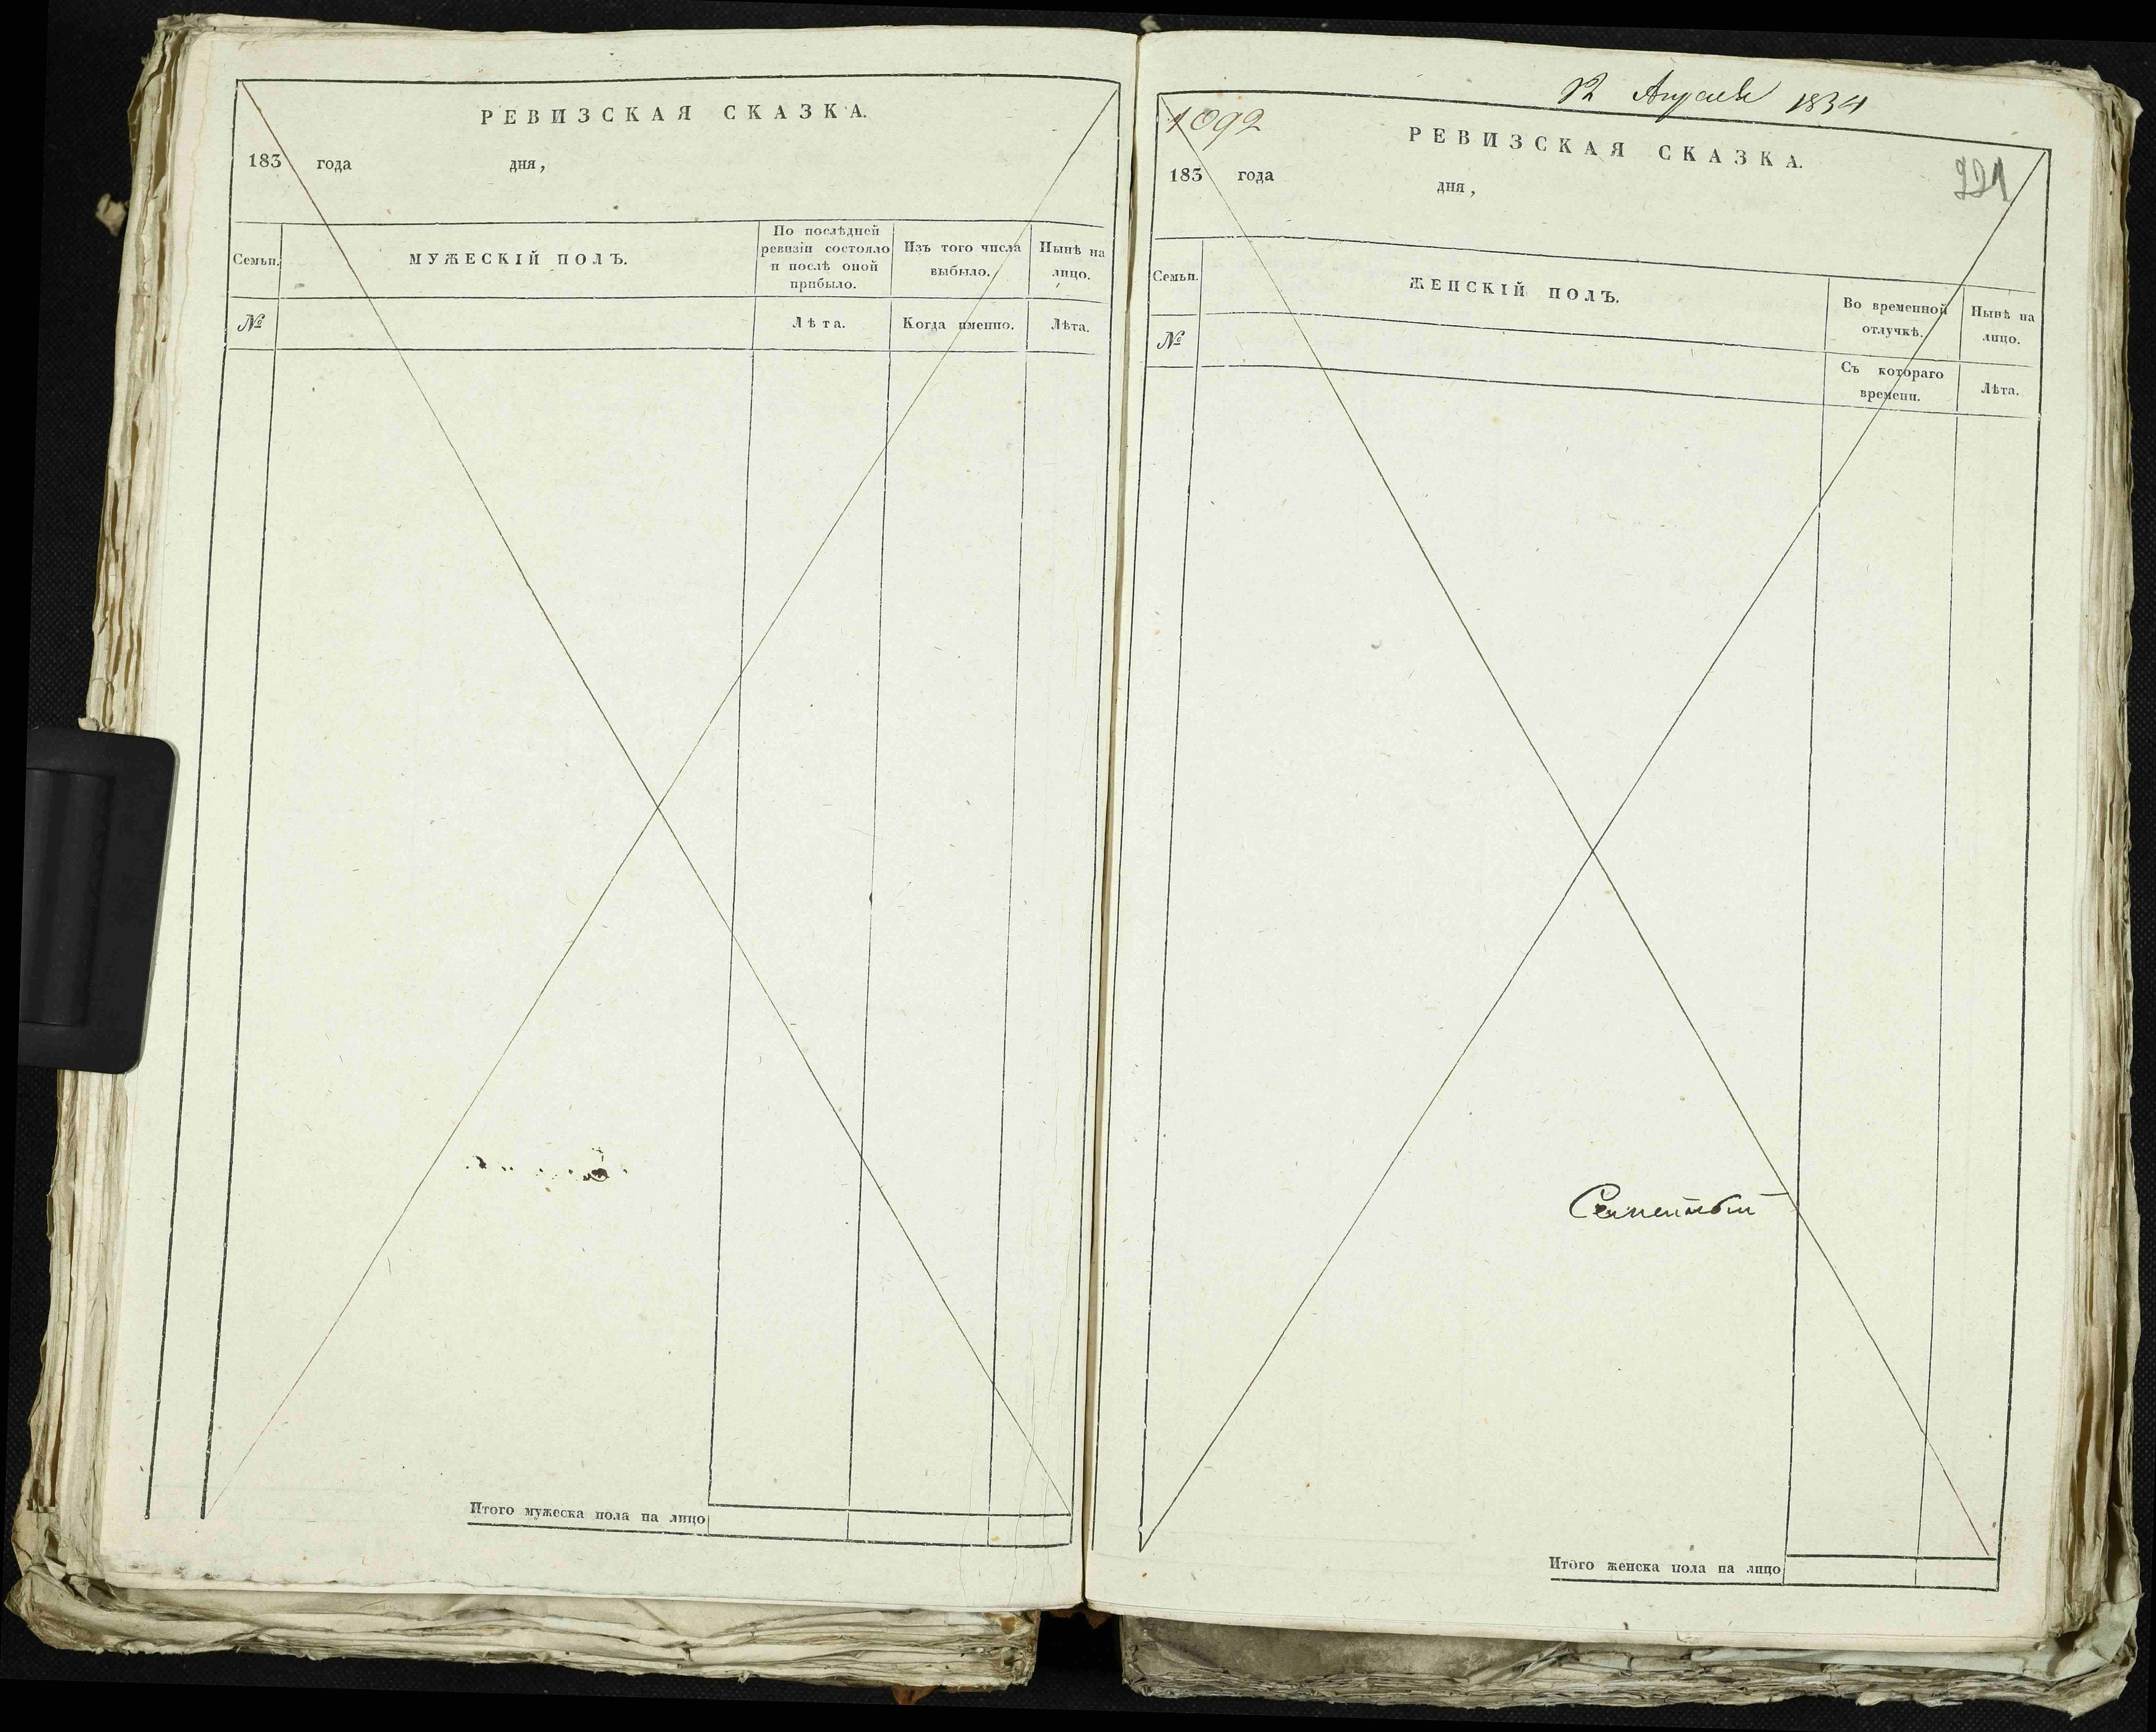 РЕВИЗСКАЯ СКАЗКА.
183 года дня,
Семьи.
МУЖЕСКІЙ ПОЛЪ.
По послѣдней
ревизіи состояло
и послѣ оной
прибыло.
Изъ того числа
выбыло.
Нынѣ на
лицо.
№
Лѣта.
Когда именно.
Лѣта.
Итого мужеска пола на лицо
12 Апреля 1834
1092
РЕВИЗСКАЯ СКАЗКА.
221
183 года дня,
Семьи.
ЖЕНСКІЙ ПОЛЪ.
Во временной
отлучкѣ.
Нынѣ на
лицо.
№
Съ котораго
времени.
Лѣта.
Итого женска пола на лицо